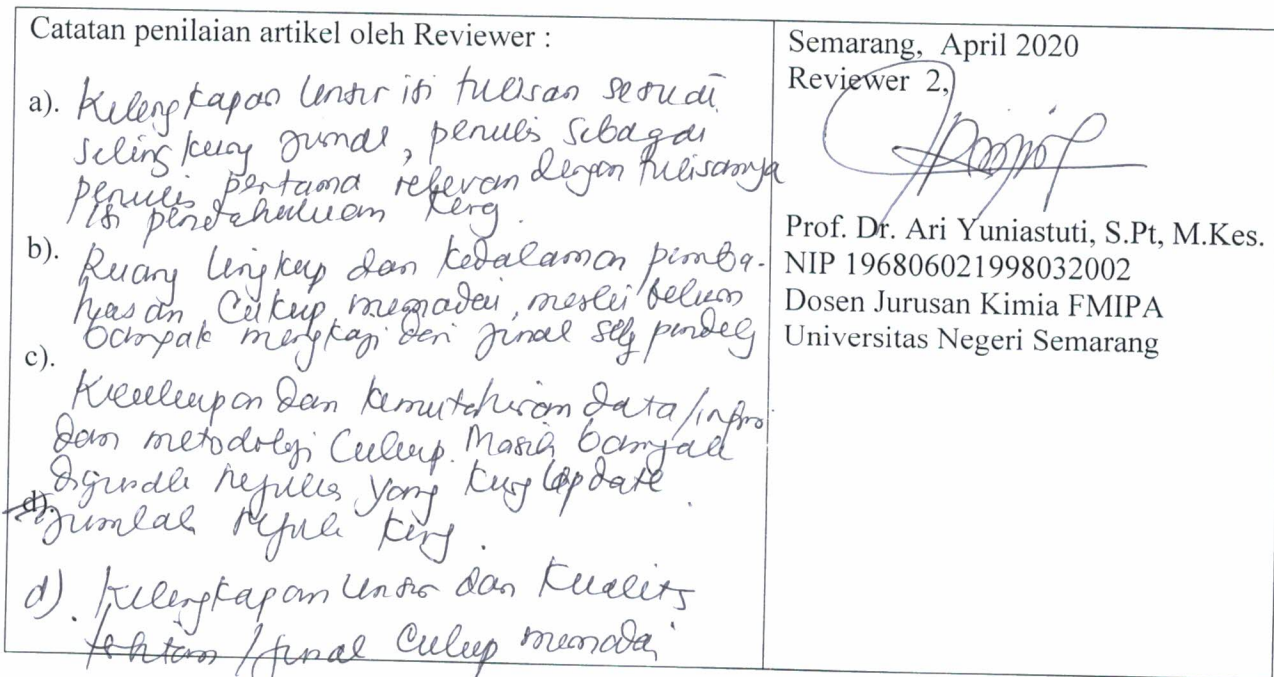 Catatan penilaian artikel oleh Reviewer :
a). Kelengkapan Unsur isi tulisan sesuai
selingkung jurnal, penulis sebagai
penulis pertama relevan dengan tulisannya
isi pendahuluan kurg.
b). Ruang lingkup dan kedalaman pemba-
hasan cukup memadai, meski belum
banyak mengkaji dari jurnal
c). Kecukupan dan kemutahiran data/info
dan metodologi Cukup. Masih banyak
yang kurg update.
d). Jumlah kurg.
d). Kelengkapan Unsur dan Kualits
/jurnal Cukup memadai
Semarang, April 2020
Reviewer 2,
Prof. Dr. Ari Yuniastuti, S.Pt, M.Kes.
NIP 196806021998032002
Dosen Jurusan Kimia FMIPA
Universitas Negeri Semarang